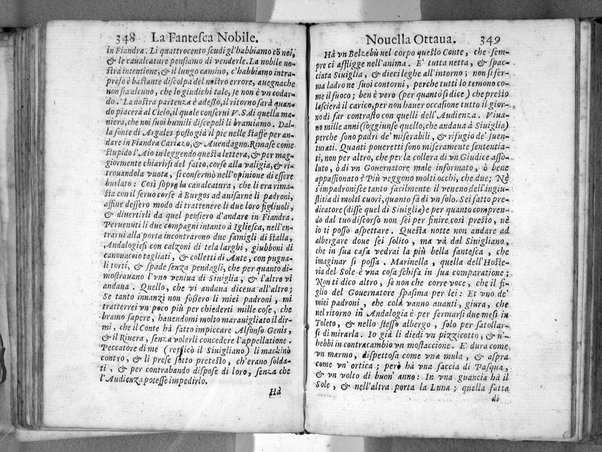 348 La Fantesca Nobile.
in Fiandra. Li quattrocento scudi gl'habbiamo cõ noi,
& le caualcature pensiamo di venderle. La nobile no-
stra intentione, & il lungo camino, c'habbiamo intra-
preso è bastante discolpa del nostro errore, auegnache
non sia alcuno, che lo giudichi tale, se non è vn codar-
do. La nostra partenza è adesso, il ritorno sarà quan-
do piacerà al Cielo, il quale conserui V. S. di quella ma-
niera, che noi suoi humili descepoli li bramiamo. Dal-
la fonte di Argales posto già il piè nelle staffe per an-
dare in Fiandra Cariazo, & Auendagno. Rimase come
stupido l'Aio in leggendo questa lettera, & per mag-
giormente chiarirsi del fatto corse alla valigia, & ri-
trouandola vuota, si confermò nell'opinione di essere
burlato: Così sopra la caualcatura, che li era rima-
sta con il seruo corse à Burgos ad auisarne li padroni,
assine desero modo di trattenere li due loro figliuoli,
& diuertirli da quel pensiero d'andare in Fiandra.
Peruenuti li due compagni intanto à Igliesca, nell'en-
trarsi alla porta incontrarono due famigli di stalla,
Andalogiesi con calzoni di tela larghi, giubboni di
canouaccio tagliati, & colletti di Ante, con pugna-
li torti, & spade senza pendagli, che per quanto di-
mostrauano l'vno veniua di Siuiglia, & l'altro vi
andaua. Quello, che vi andaua diceua all'altro;
Se tanto innanzi non fossero li miei padroni, mi
tratterrei vn poco più per chiederti mille cose, che
bramo sapere, hauendomi molto marauigliato il dir-
mi, che il Conte hà fatto impiccare Alfonso Genis,
& il Riuera, senza volerli concedere l'appellatione.
Peccatore di me (replicò il Siuigliano) li machinò
contro, & li prese sotto pretesto, ch'erano solda-
ti, & per contrabando dispose di loro, senza che
l'Audienza potesse impedirlo.
Hà
Nouella Ottaua. 349
Hà vn Belzebù nel corpo questo Conte, che sem-
pre ci affligge nell'anima. E' tutta netta, & spac-
ciata Siuiglia, & dieci leghe all'intorno; non si fer-
ma ladrone suoi contorni, perche tutti lo temono co-
me il fuoco; ben è vero (per quanto si dice) che presto
lascierà il carico, per non hauer occasione tutto il gior-
no di far contrasto con quelli dell'Audienza. Viua-
no mille anni (soggiunse quello, che andaua à Siuiglia)
perche sono padri de' miserabili, & rifugio de' suen-
turati. Quanti poueretti sono miseramente sententia-
ti, non per altro, che per la collera di vn Giudice asso-
luto, ò di vn Gouernatore male informato, ò bene
appassionato? Più veggono molti occhi, che due; Nè
s'impadronisce tanto facilmente il veneno dell'ingiu-
stitia di molti cuori, quanto fà di vn solo. Sei fatto pre-
dicatore (disse quel di Siuiglia) e per quanto compren-
do dal tuo discorso non sei per finire così presto, nè
io ti posso aspettare. Questa notte non andare ad
albergare doue sei solito, ma và dal Siuigliano,
che in sua casa vedrai la più bella fantesca, che
imaginar si possa. Marinella, quella dell'Hoste-
via del Sole è vna cosa schifa in sua comparatione;
Non ti dico altro, se non che corre voce, che il fi-
glio del Gouernatore spasima per lei: Et vno de'
miei padroni, che colà vanno auanti, giura, che
nel ritorno in Andalogia è per fermarsi due mesi in
Toleto, & nello stesso albergo, solo per satollar-
si di mirarla. Io già li diedi vn pizzicotto, & n'
hebbi in contracambio vn mostaccione. E' dura come
vn marmo, dispettosa come vna mula, & aspra
come vn'ortica; però hà vna faccia di Pasqua,
& vn volto di buon' anno: In vna guancia hà il
Sole, & nell'altra porta la Luna; quella fatta
di